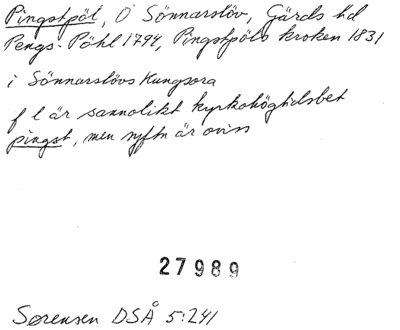 Pingstpöl, Ö Sönnarslöv, Gärds hd
Pengs-Pöhl 1794, Pingstpöls kroken 1831
i Sönnarslövs Kungsora
f l är sannolikt kyrkohögtidsbet
pingst, men syftn är oviss
27989
Sørensen DSÅ 5:241